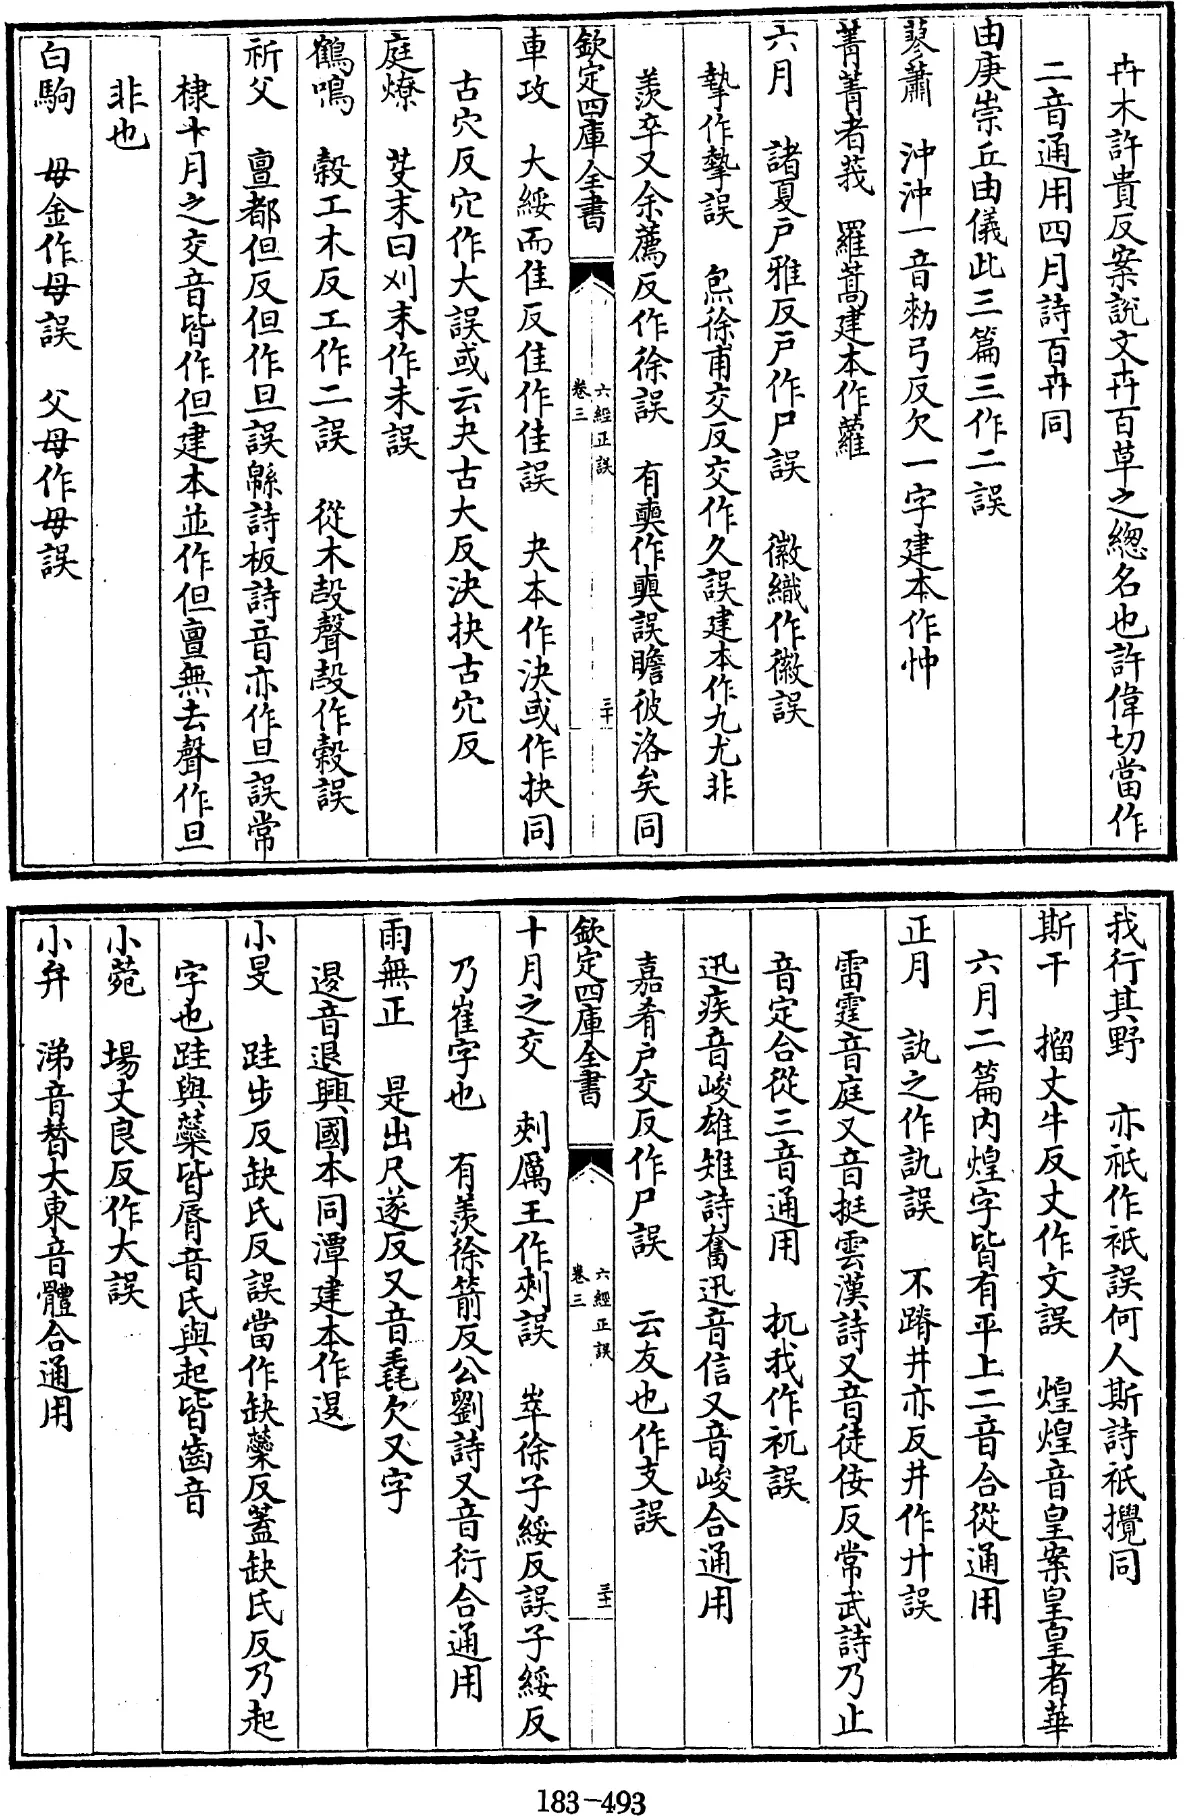 卉木許貴反案說文卉百草之總名也許偉切當作
二音通用四月詩百卉同
由庚崇丘由儀此三篇三作二誤
蓼蕭　沖沖一音勑弓反欠一字建本作忡
菁菁者莪　羅蒿建本作蘿
六月　諸夏戸雅反戸作尸誤　徽織作徽誤
摯作摯誤　炰徐甫交反交作久誤建本作九尤非
羨卒又余薦反作徐誤　有奭作奭誤瞻彼洛矣同
欽定四庫全書
六經正誤
卷三
三十
車攻　大綏而佳反佳作佳誤　夬本作決或作抉同
古穴反穴作大誤或云夬古大反決抉古穴反
庭燎　芟末曰刈末作未誤
鶴鳴　榖工木反工作二誤　從木㱿聲㱿作榖誤
祈父　亶都但反但作旦誤緜詩板詩音亦作旦誤常
棣十月之交音皆作但建本並作但亶無去聲作旦
非也
白駒　毋金作母誤　父母作毋誤
我行其野　亦祇作衹誤何人斯詩祇攪同
斯干　摺丈牛反丈作文誤　煌煌音皇案皇皇者華
六月二篇内煌字皆有平上二音合從通用
正月　訊之作訊誤　不蹐井亦反井作廾誤
雷霆音庭又音挺雲漢詩又音徒佞反常武詩乃止
音定合從三音通用　扤我作杌誤
迅疾音峻雄雉詩奮迅音信又音峻合通用
嘉肴戸交反作尸誤　云友也作支誤
欽定四庫全書
六經正誤
卷三
三十一
十月之交　刺厲王作剌誤　崒徐子綏反誤子綏反
乃崔字也　有羨徐箭反公劉詩又音衍合通用
雨無正　是出尺遂反又音毳欠又字
退音退興國本同潭建本作退
小旻　跬步反缺氏反誤當作缺蘂反蓋缺氏反乃起
字也跬與蘂皆脣音氏與起皆齒音
小菀　場丈良反作大誤
小弁　涕音替大東音體合通用
183-493